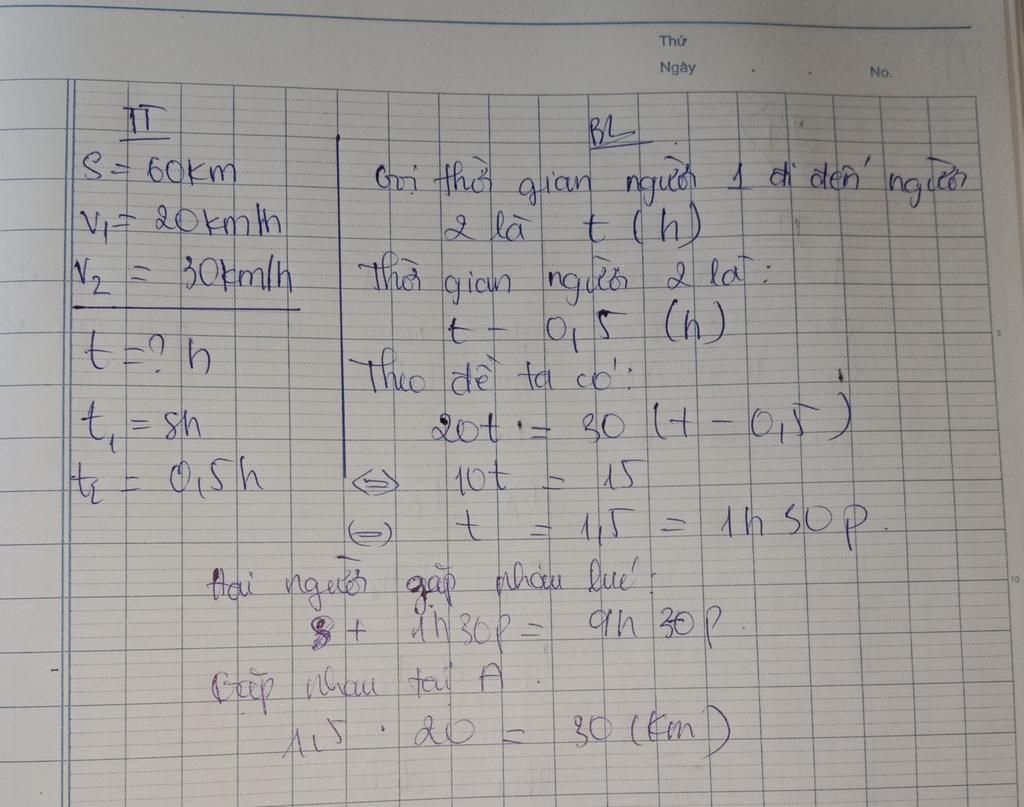 Thứ
Ngày
No.
TT
S = 60km
V₁ = 20km/h
V₂ = 30km/h
t = ? h
t₁ = 8h
t₂ = 0,5h
BL
Gọi thời gian người 1 đi đến người
2 là t (h)
Thời gian người 2 là:
t - 0,5 (h)
Theo đề ta có:
20t = 30 (t - 0,5)
⇔ 10t = 15
⇔ t = 1,5 = 1h 30p.
Hai người gặp nhau lúc:
8 + 1h 30p = 9h 30p.
Gặp nhau tại A.
1,5 . 20 = 30 (km)
5
10